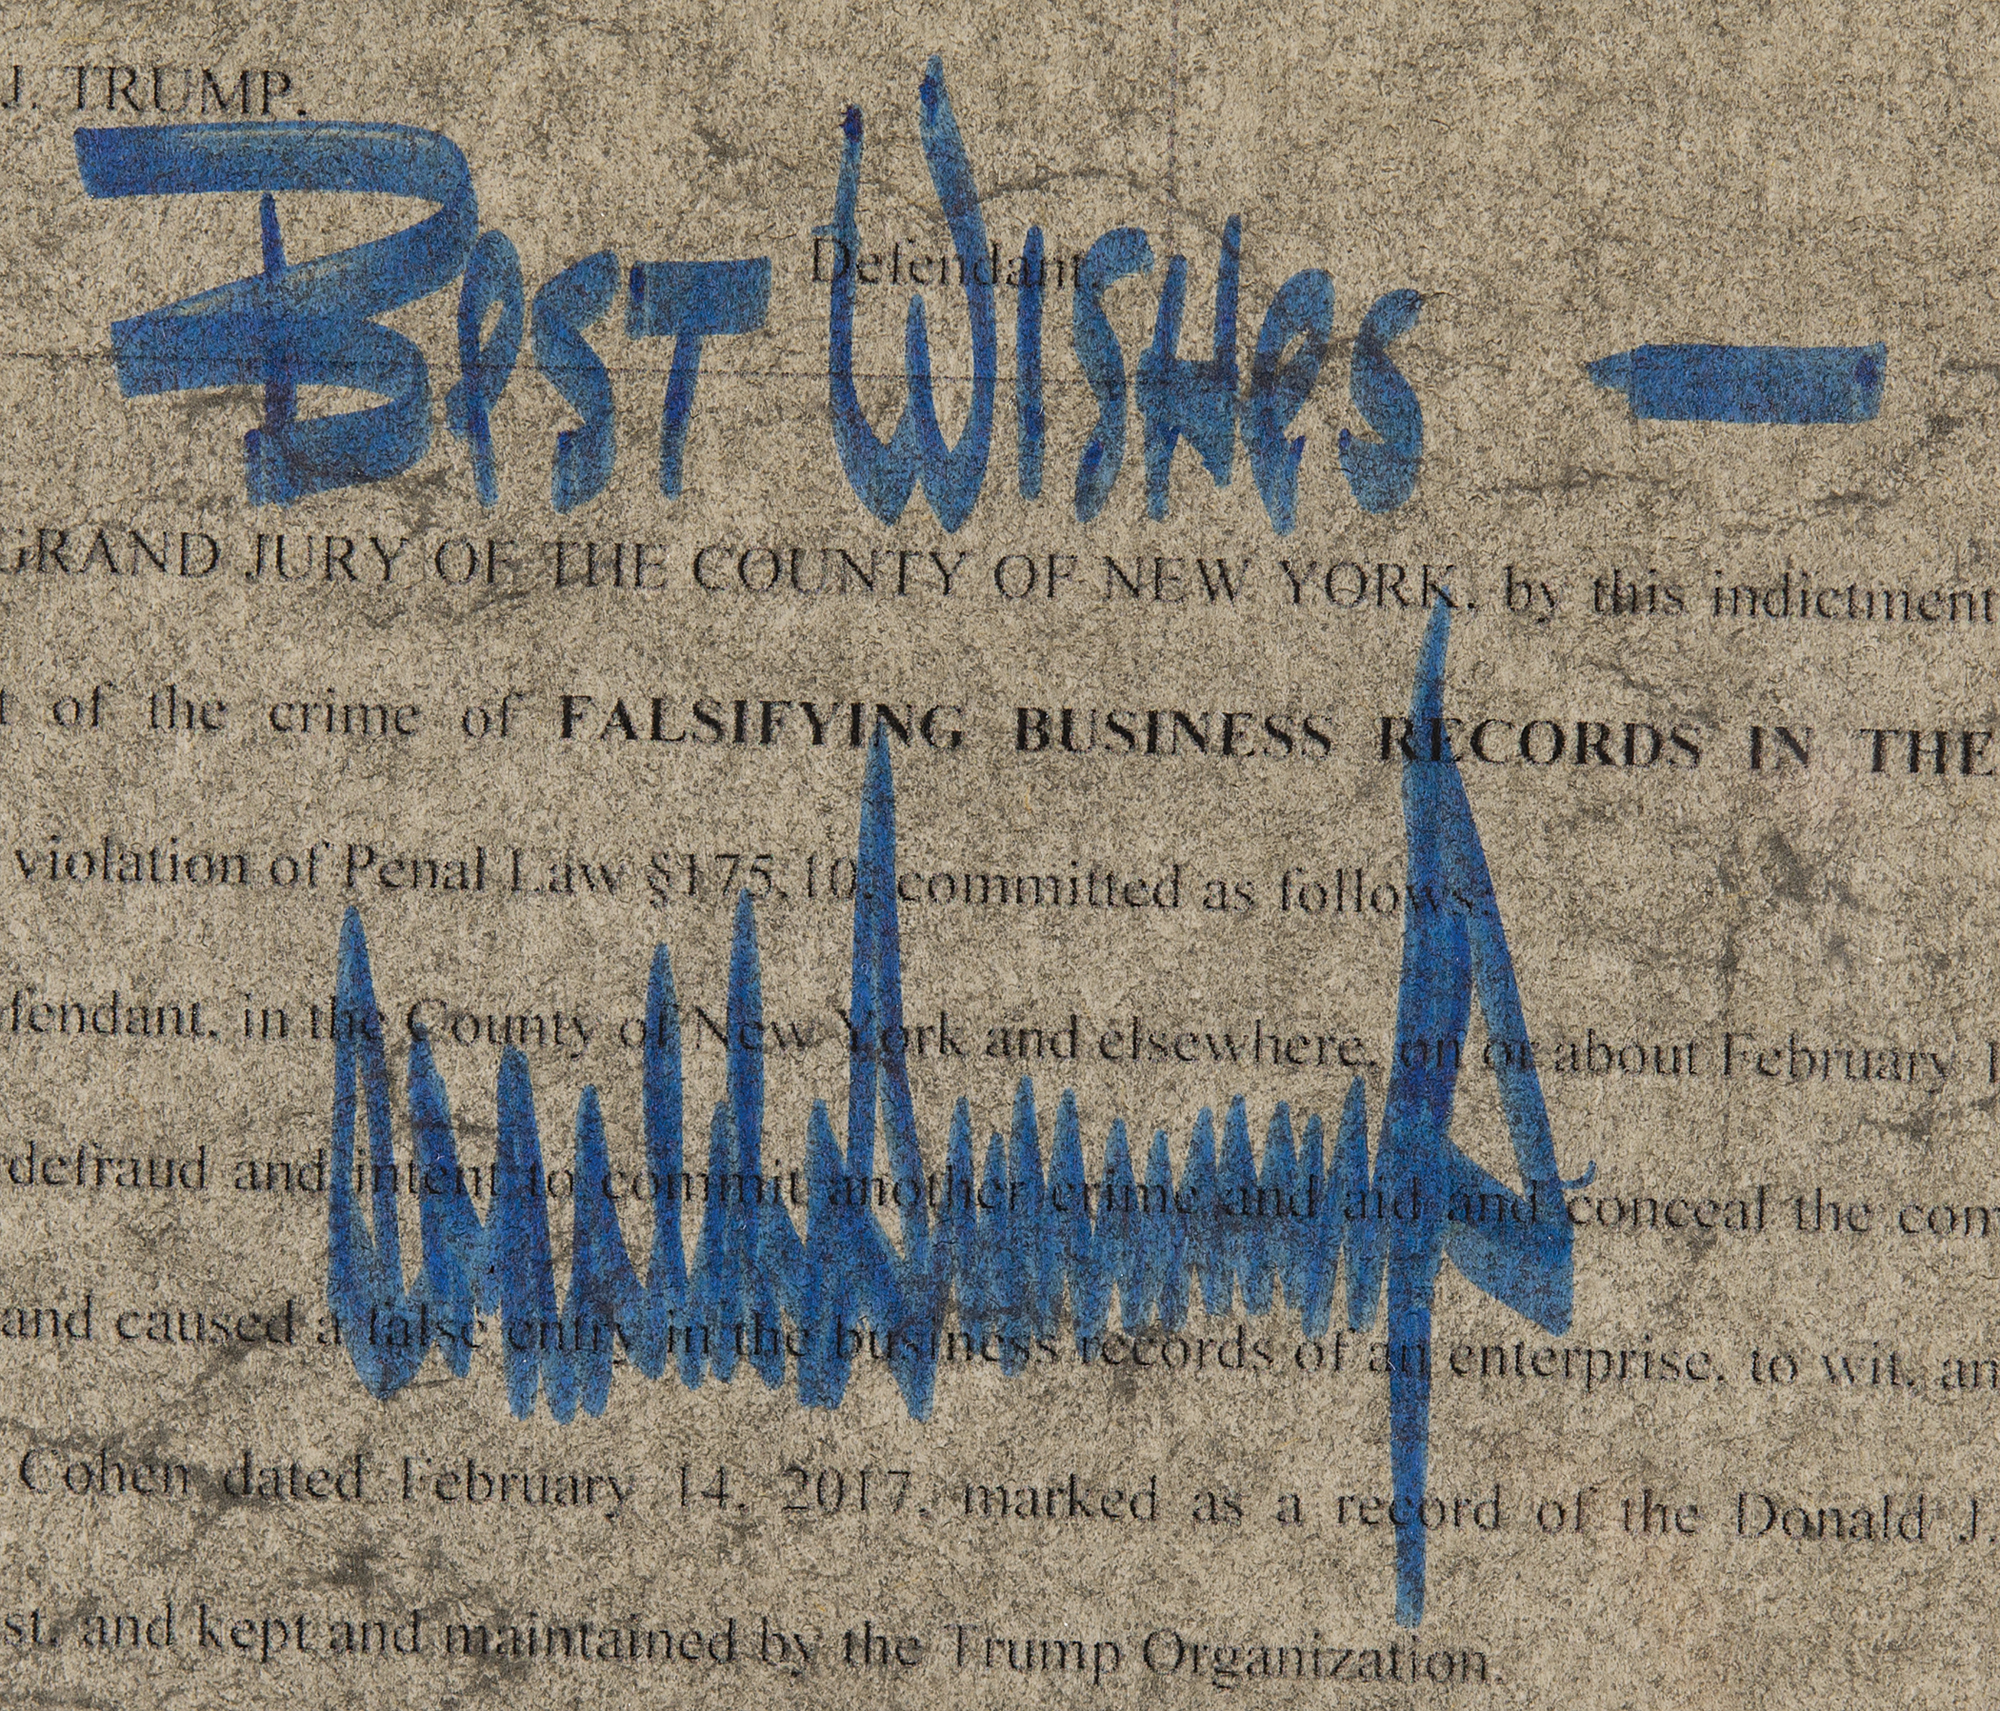 J. TRUMP.
BesT WisHes -
Defendant.
GRAND JURY OF THE COUNTY OF NEW YORK, by this indictment
of the crime of FALSIFYING BUSINESS RECORDS IN THE
violation of Penal Law §175.10, committed as follows:
fendant, in the County of New York and elsewhere, on or about February 1
defraud and intent to commit another crime and aid and conceal the com
and caused a false entry in the business records of an enterprise, to wit, an
Cohen dated February 14, 2017, marked as a record of the Donald J.
st, and kept and maintained by the Trump Organization.